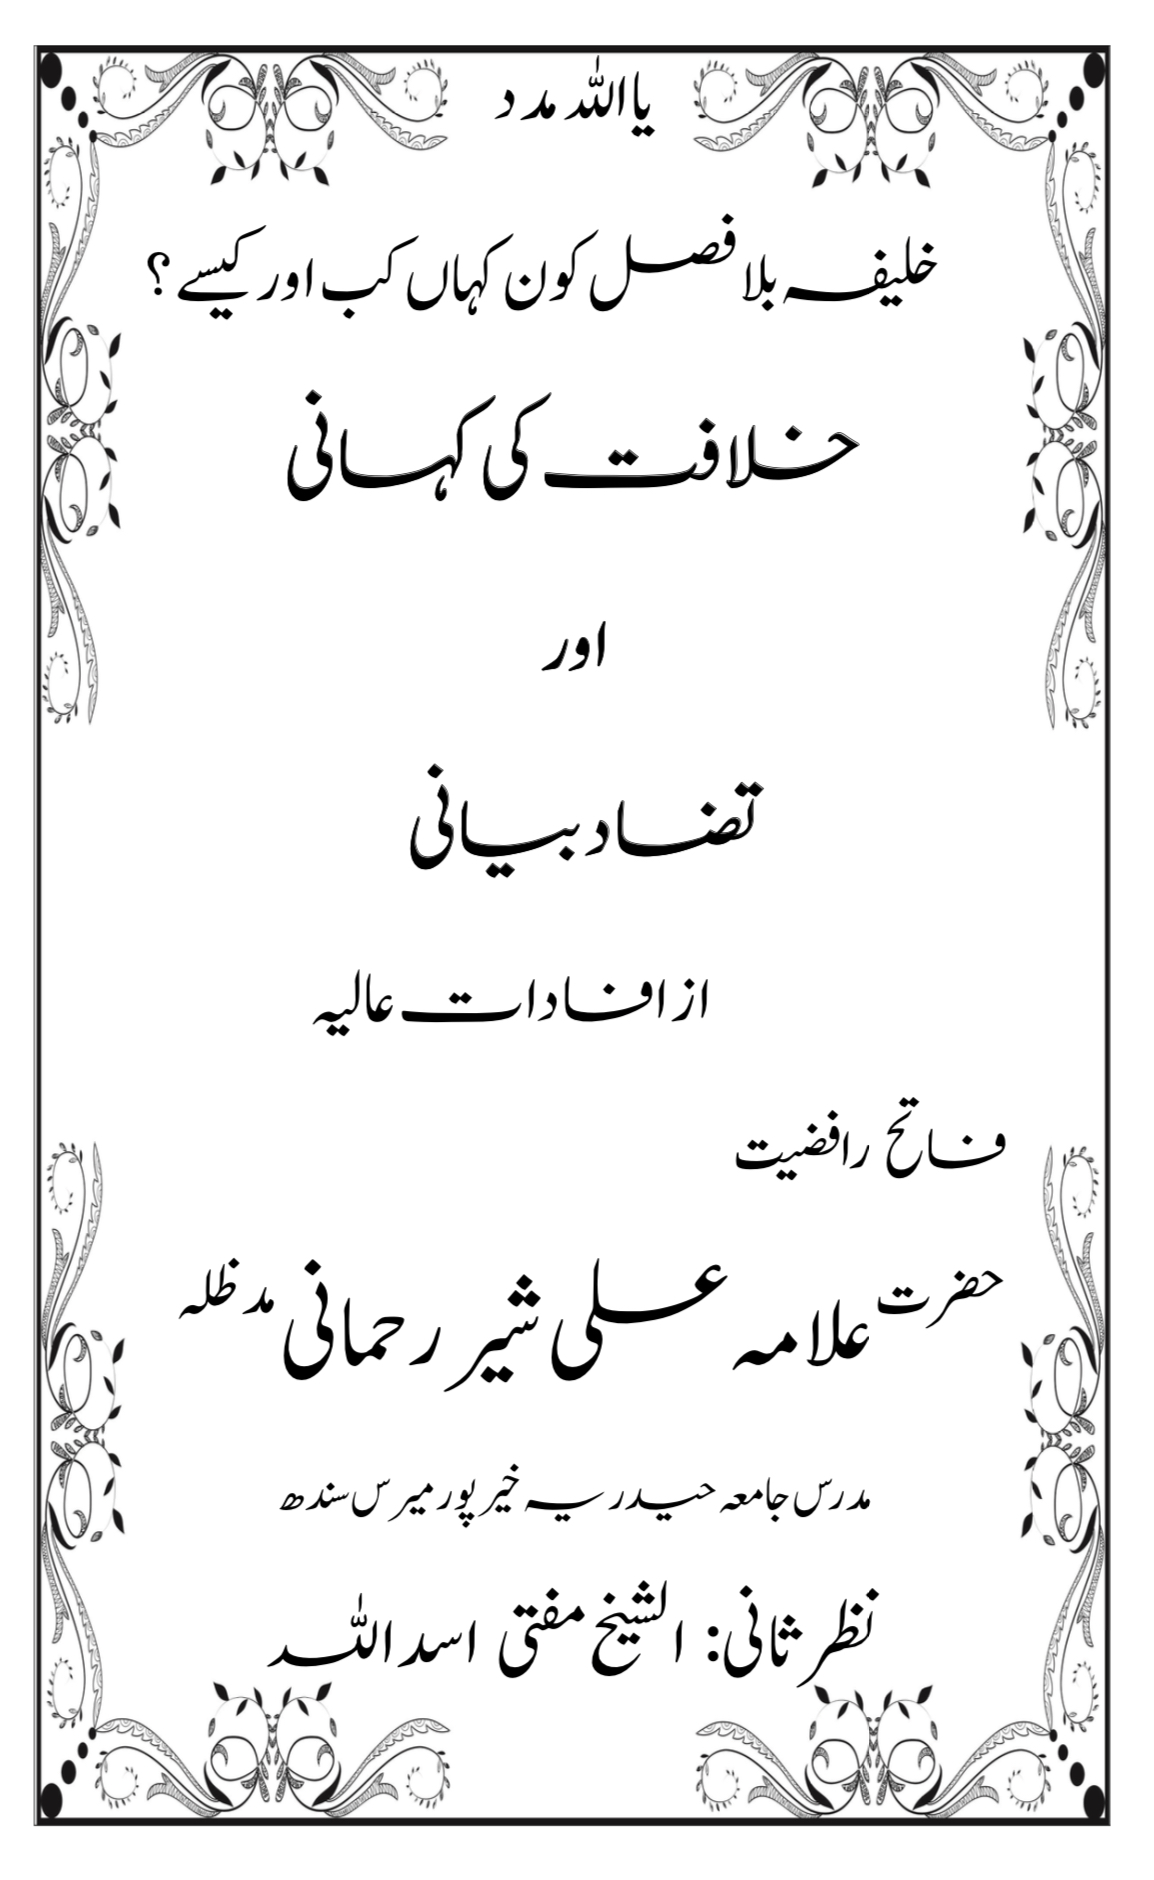 یا اللہ مدد
خلیفہ بلا فصل کون کہاں کب اور کیسے ؟
خلافت کی کہانی
اور
تضاد بیانی
از افادات عالیہ
فاتح رافضیت
حضرت علامہ علی شیر رحمانی مدظلہ
مدرس جامعہ حیدریہ خیر پور میرس سندھ
نظر ثانی: الشیخ مفتی اسد اللہ